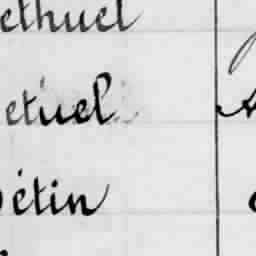 ethuel
etuel
étin